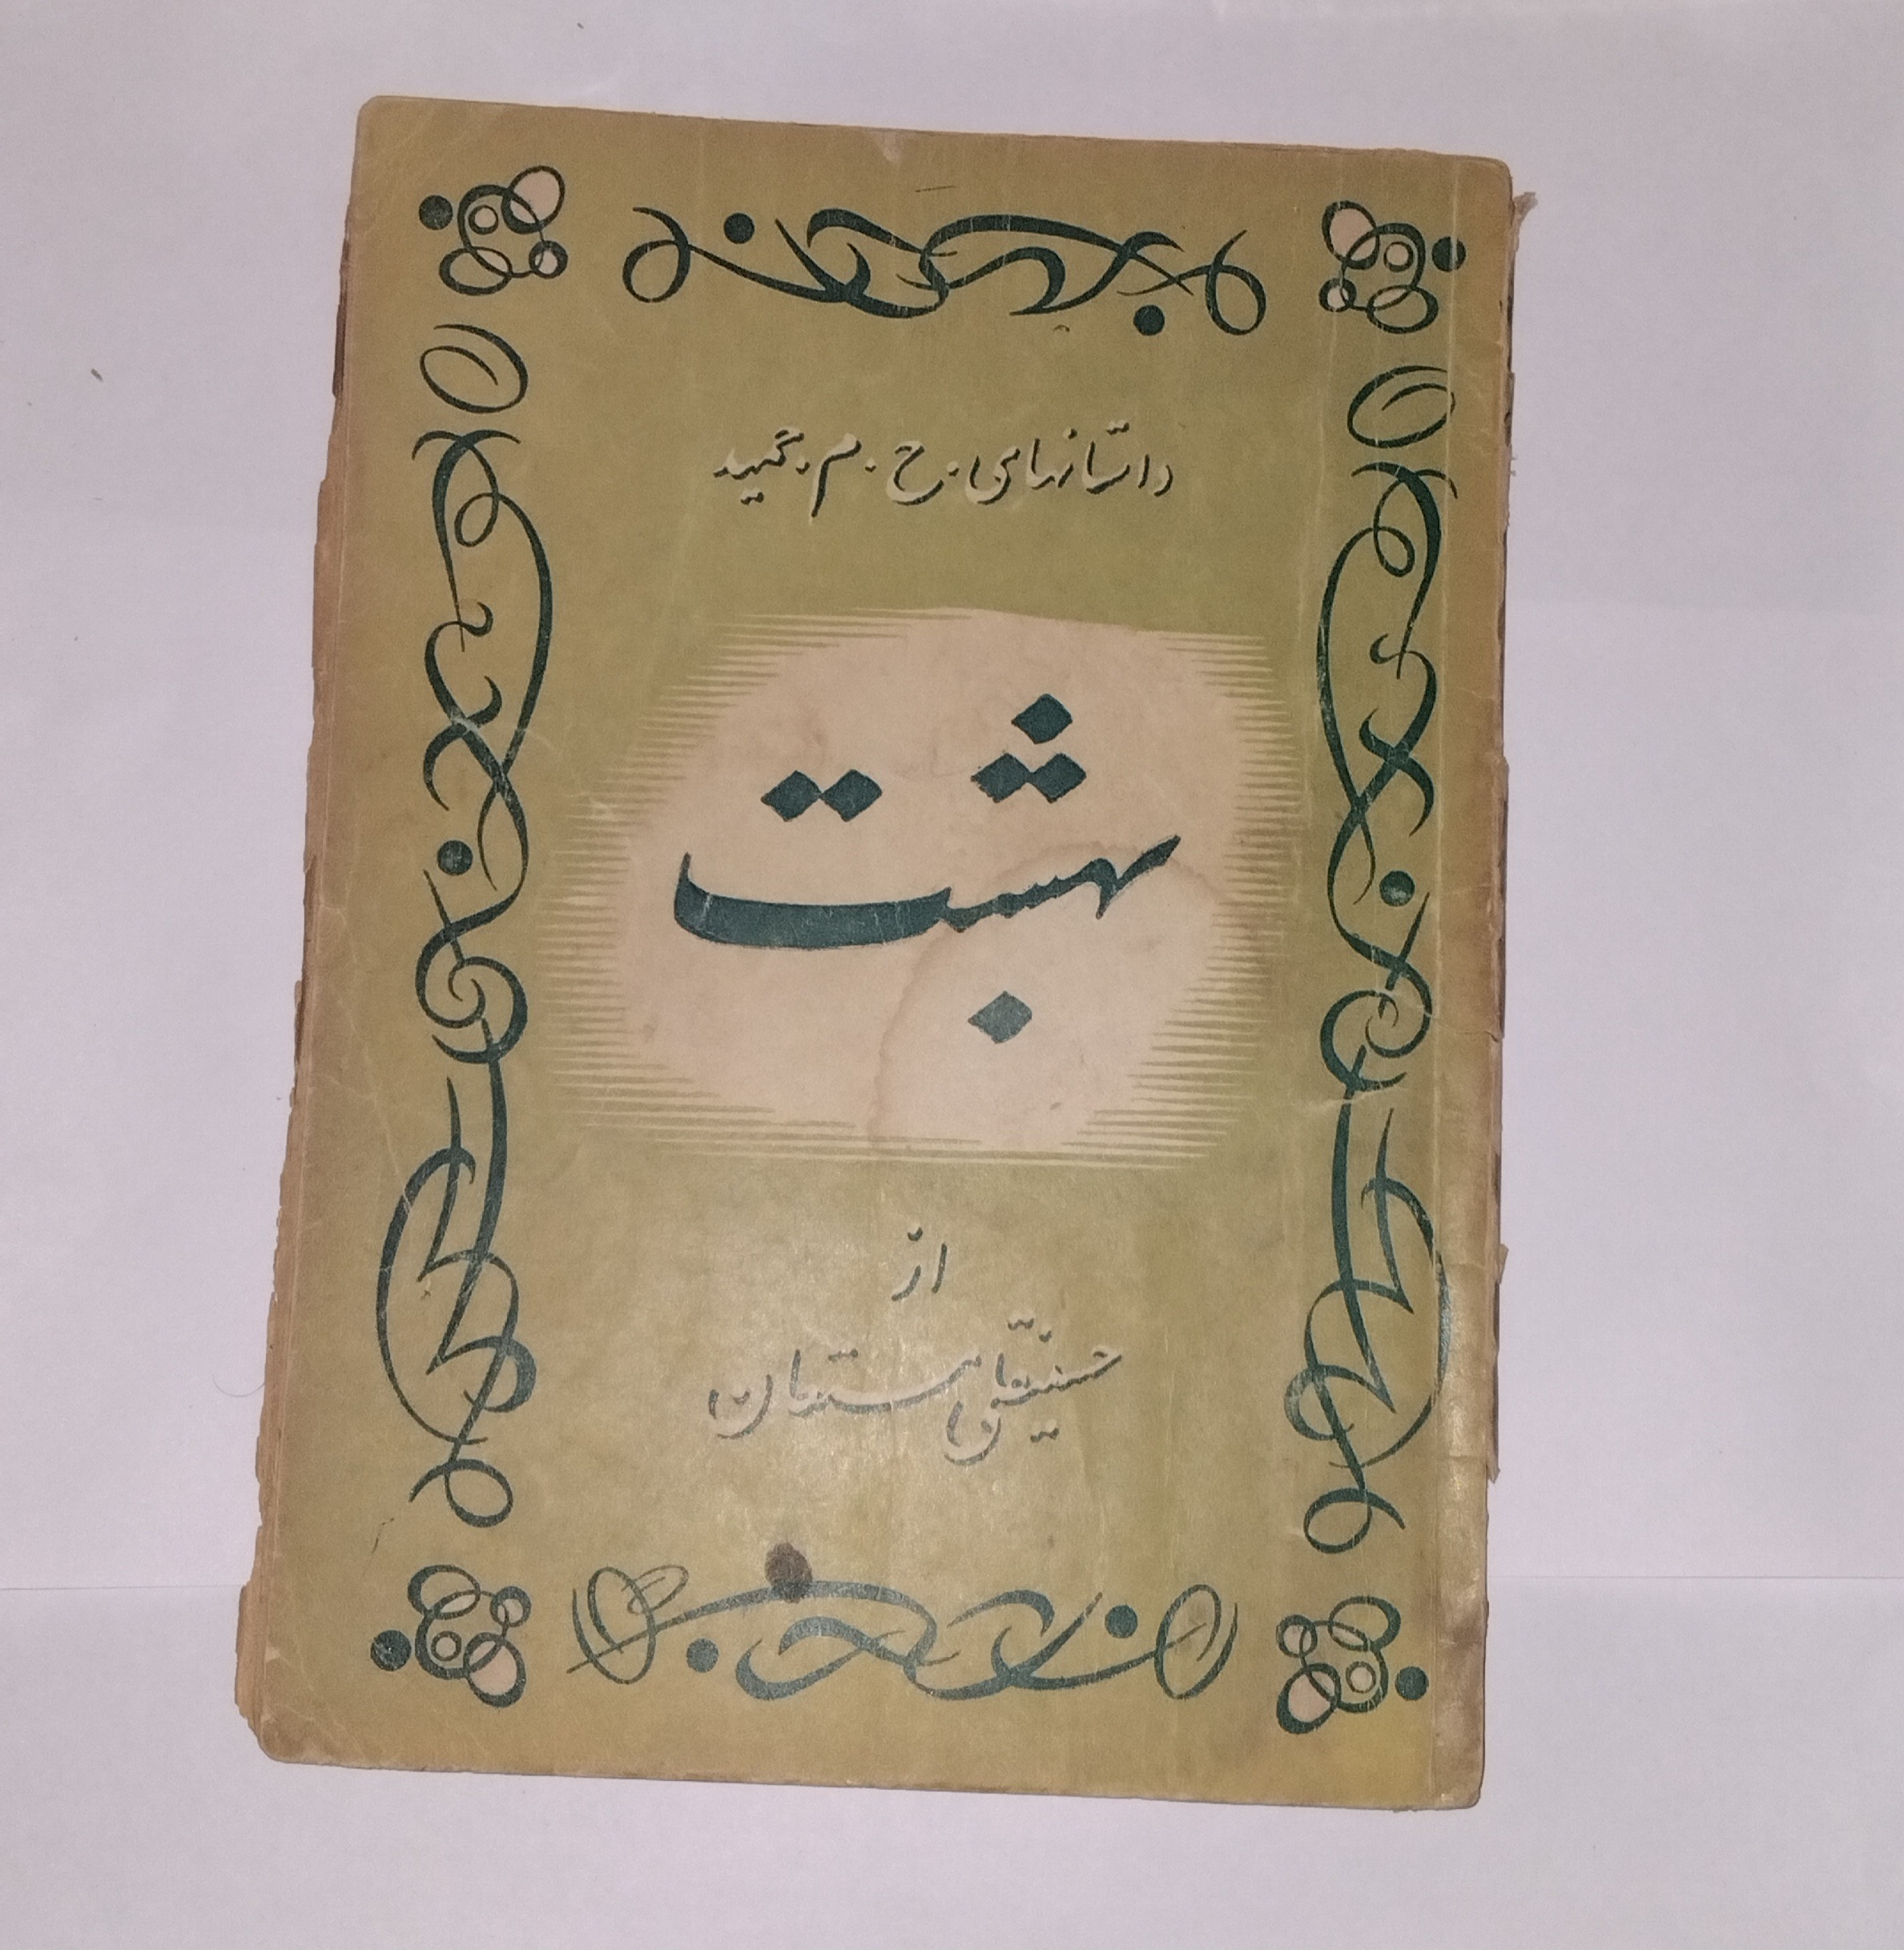 داستانهای . ح . م . حمید
بهشت
از
حسینقلی مستعان